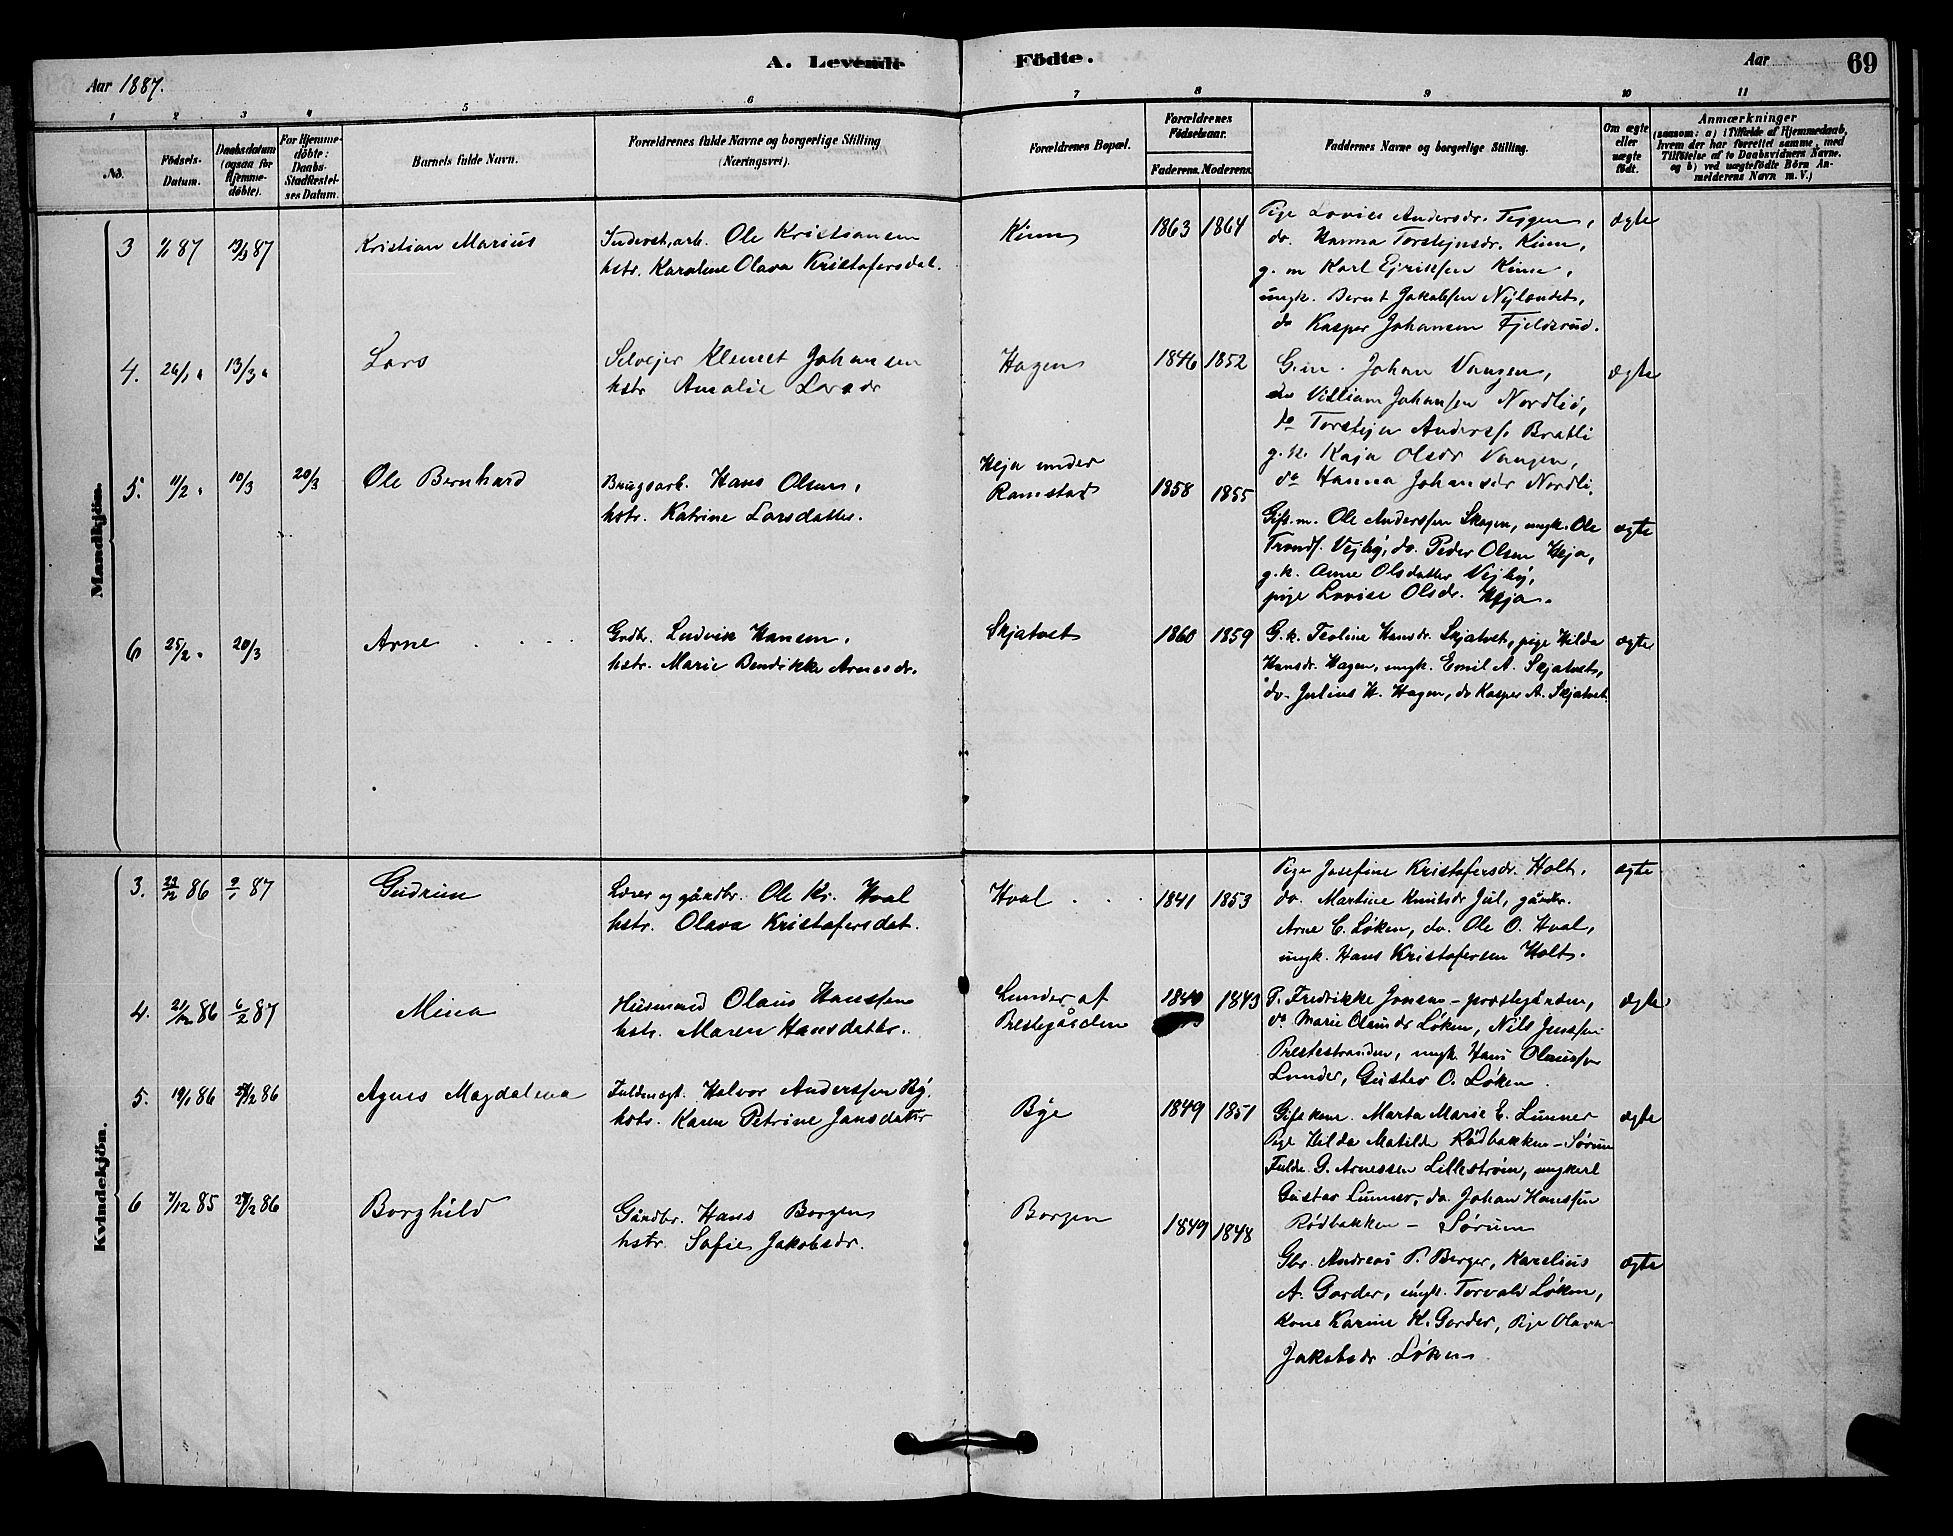 A. Levende Födte.
Aar 1887.
Aar
69
1 2 3 4 5 6 7 8 9 10 11
No.
Födsels-Datum.
Daabsdatum (ogsaa for Hjemme-döbte).
For Hjemme-döbte: Daabs-Stadfæstel-ses Datum.
Barnets fulde Navn.
Forældrenes fulde Navne og borgerlige Stilling (Næringsvei).
Forældrenes Bopæl.
Forældrenes Födselsaar.
Faderens. Moderens.
Faddernes Navne og borgerlige Stilling.
Om ægte eller uægte födt.
Anmærkninger
(saasom: a) i Tilfælde af Hjemmedaab,
hvem der har forrettet samme, med
Tilföielse af to Daabsvidners Navne.
og b) ved uægtefödte Börn An-
melderens Navn m. V.)
Mandkjön.
3 87 87 Kristian Marius
Ole Kristiansen
hstr. Karoline Olava Kristofersdat.
Kinn
1863 1864
Pige Lovise Andersdr.
do. Hanna Torstejnsdr. Kinn,
g. m Karl Ejriksen Kinn,
ungk. Bernt Jakobsen Nylandet,
do Kasper Johansen Fjeldsrud.
ægte
4. 26/1 " 13/3 " Lars
Selvejer Klemet Johansen
hstr. Amalie Larsdr
Hagen
1846 1852
G.m. Johan Vangen,
do Villiam Johansen Nordlid,
do Torstejn Anderss. Bratli
g. k. Kaja Olsdr Vangen,
do Hanna Johansdr Nordli.
ægte
5. 11/2 " 10/3 20/3 Ole Bernhard
Brugsarb. Hans Olsen,
hstr. Katrine Larsdatter.
Heja under
Ramstad
1858 1855
Gift. m. Ole Anderssen Skogen, ungk. Ole
Vejby, do. Peder Olsen Heja,
g.k. Anne Olsdatter Vejby,
pige Lovise Olsdr. Heja.
ægte
6 25/2 " 20/3 Arne
Grdbr. Ludvik Hansen,
hstr. Marie Bendikke Arnesdr.
Skjatvet
1860 1859
G.k. Teoline Hansdr. Skjatvet, pige Hilda
Hansdr. Hagen, ungk. Emil A. Skjatvet,
do. Julius H. Hagen, do Kasper A. Skjatvet.
ægte
Kvindekjön.
3. 86 9/1 87 Gudrun
Lærer og gårdbr. Ole Kr. Hval
hstr. Olava Kristofersdat.
Hval
1841 1853
Pige Josefine Kristofersdr. Holt,
do. Martine Knutsdr Jul, gårdbr.
Arne C. Løken, do. Ole O. Hval,
ungk. Hans Kristofersen Holt.
ægte
4. 21/12 86 6/2 87 Mina
Husmand Olaus Hanssen
hstr. Maren Hansdatter.
Lunder af
Prestegården
1840 1843
P. Fredrikke Jonsen - prestegården,
do Marie Olausdr Løken, Nils Jenssen
Prestestranden, ungk. Hans Olaussen
Lunder, Gustav O. Løken.
ægte
5. 19/1 86 86 Agnes Magdalena
Fuldmægt. Halvor Anderssen By.
hstr. Karen Petrine Jansdatter
Bye
1849 1851
Gift kone. Marta Marie E. Lunner
Pige Hilda Matilde Rødbakken - Sørum
Fuldm. G. Arnessen Lillestrøm, ungkarl
Gustav Lunner, do. Johan Hanssen
Rødbakken - Sørum
ægte
6 7/12 85 86 Borghild
Gårdbr. Hans Borgen
hstr. Sofie Jakobsdr.
Borgen
1849 1848
Gbr. Andreas P. Berger, Karelius
A. Garder, ungk. Torvald Løken,
Kone Karine K. Garder, Pige Olava
Jakobsdr. Løken
ægte